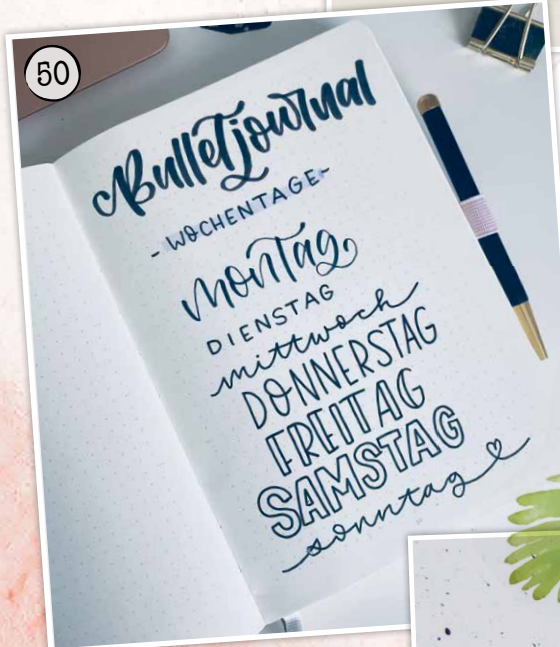 50
Bulletjournal
- WOCHENTAGE -
montag
DIENSTAG
mittwoch
DONNERSTAG
FREITAG
SAMSTAG
sonntag